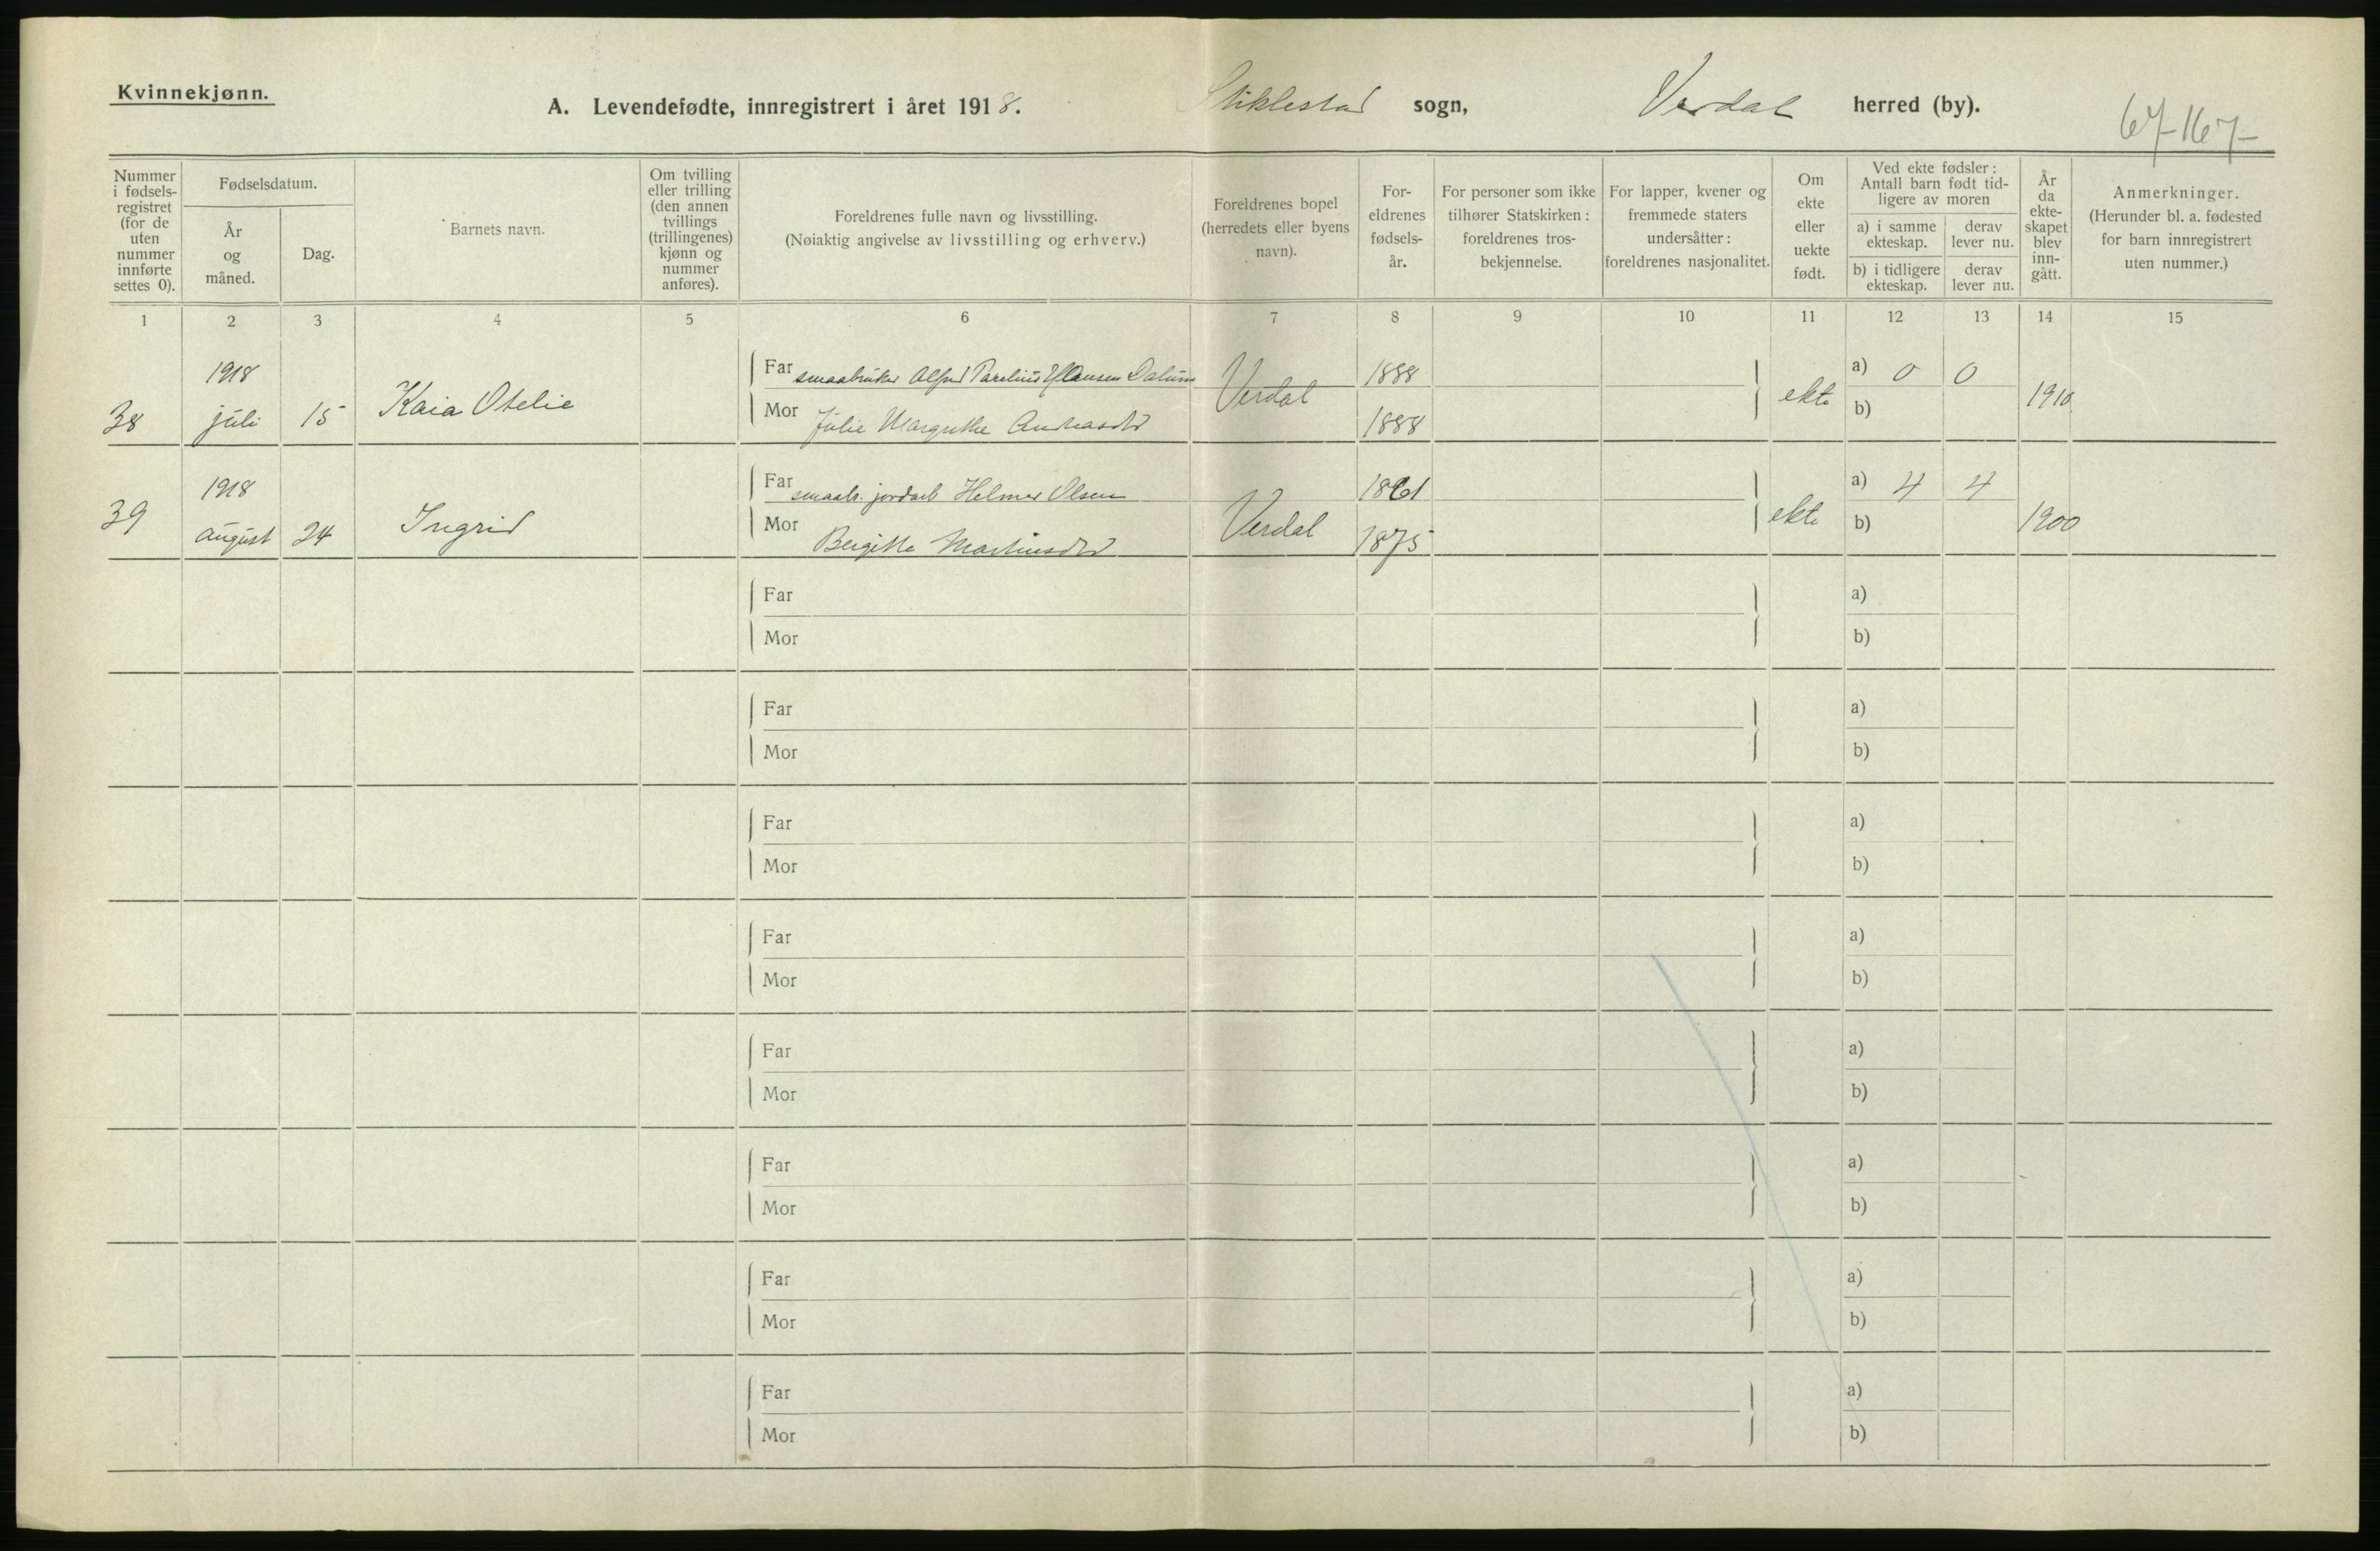 Kvinnekjønn.
A. Levendefødte, innregistrert i året 1918. Stiklestad sogn, Verdal herred (by).
67-167-
Nummer i fødsels-registret (for de uten nummer innførte settes 0).
Fødselsdatum.
År og måned.
Dag.
Barnets navn.
Om tvilling eller trilling (den annen tvillings (trillingenes) kjønn og nummer anføres).
Foreldrenes fulle navn og livsstilling.
(Nøiaktig angivelse av livsstilling og erhverv.)
Foreldrenes bopel (herredets eller byens navn).
For-eldrenes fødsels-år.
For personer som ikke tilhører Statskirken: foreldrenes tros-bekjennelse.
For lapper, kvener og fremmede staters undersåtter: foreldrenes nasjonalitet.
Om ekte eller uekte født.
Ved ekte fødsler: Antall barn født tid-ligere av moren
a) i samme ekteskap.
derav lever nu.
b) i tidligere ekteskap.
derav lever nu.
År da ekte-skapet blev inn-gått.
Anmerkninger.
(Herunder bl. a. fødested for barn innregistrert uten nummer.)
1 2 3 4 5 6 7 8 9 10 11 12 13 14 15
38 1918 juli 15 Kaia Otelie
Far smaabruker Alfred Parelius Hansen Dalum Verdal 1888 ekte a) 0 0 1910
Mor Julie Margrethe Andreasdtr 1888 b)
39 1918 august 24 Ingrid
Far smaabr. jordarb Helmer Olsen Verdal 1861 ekte a) 4 4 1900
Mor Bergitte Martinsdtr 1875 b)
Far a)
Mor b)
Far a)
Mor b)
Far a)
Mor b)
Far a)
Mor b)
Far a)
Mor b)
Far a)
Mor b)
Far a)
Mor b)
Far a)
Mor b)